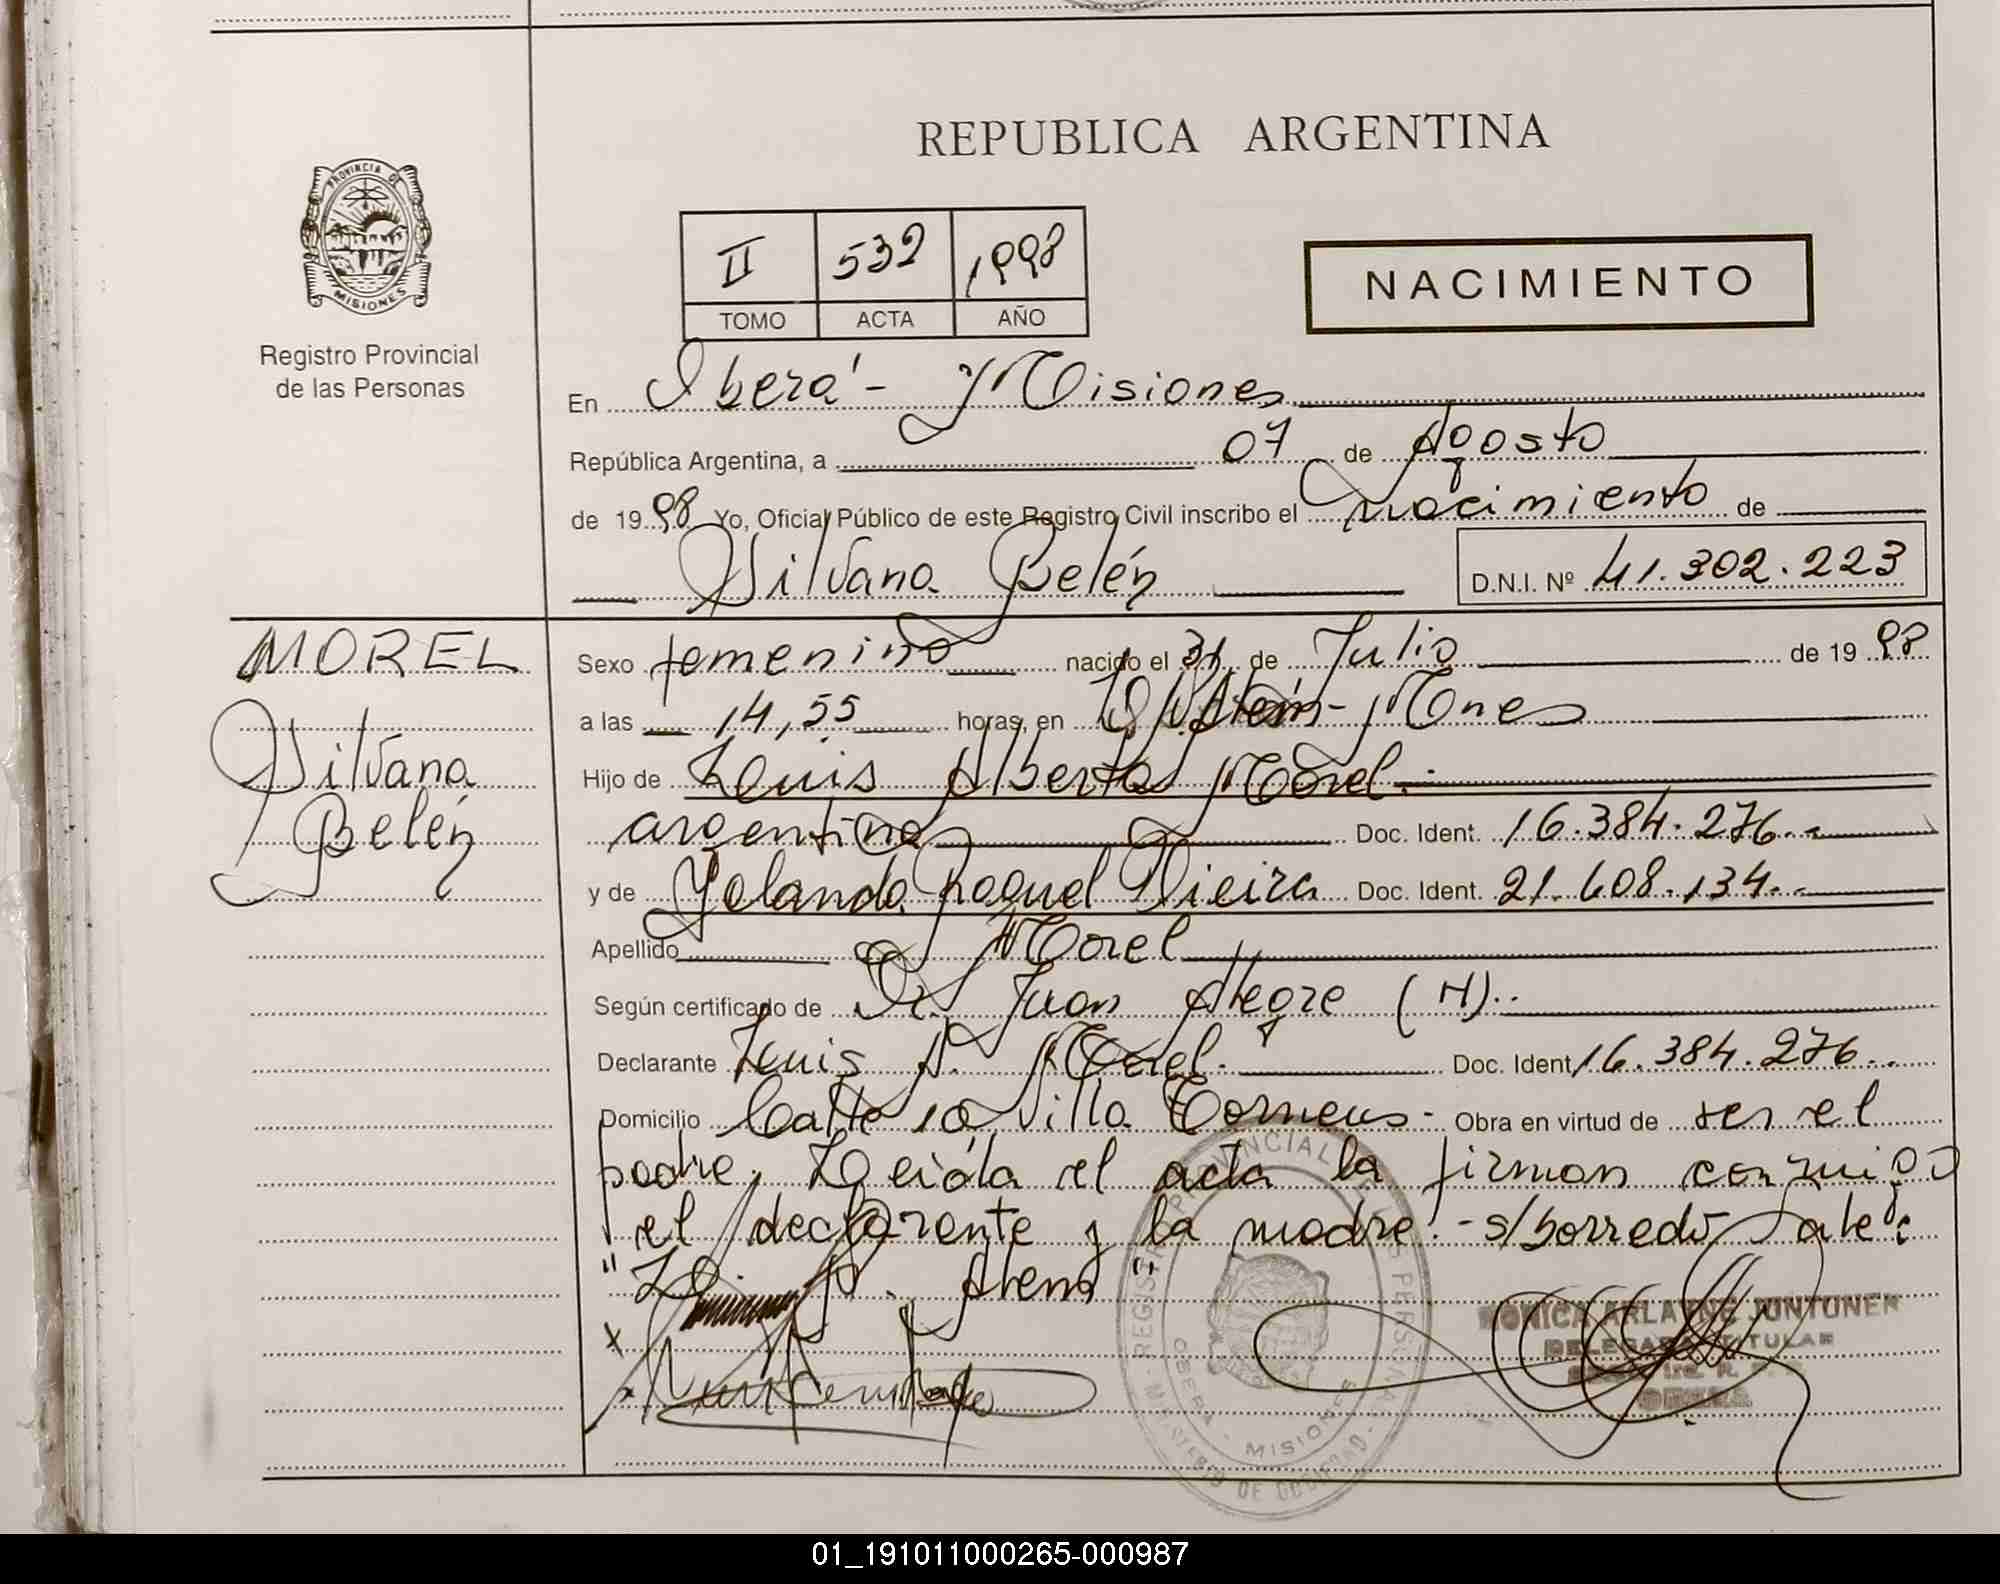 REPUBLICA ARGENTINA
PROVINCIA DE
MISIONES
Registro Provincial
de las Personas
II 532 1998
TOMO ACTA AÑO
NACIMIENTO
En Oberá - Misiones
República Argentina, a 07 de Agosto
de 19 98 Yo, Oficial Público de este Registro Civil inscribo el nacimiento de
Silvana Belén D.N.I. Nº 41.302.223
MOREL
Silvana
Belén
Sexo femenino nacido el 31 de Julio de 19 98
a las 14,55 horas, en Mnes
Hijo de Luis Alberto Morel.
argentino Doc. Ident. 16.384.276.-
y de Yolanda Raquel Vieira Doc. Ident. 21.608.134.-
Apellido Morel
Según certificado de Dr. Juan Alegre (H).
Declarante Luis A. Morel. Doc. Ident 16.384.276.-
Domicilio Calle 10 Villa Torneus - Obra en virtud de ser el
padre. Leída el acta la firman conmigo
el declarante y la madre. - s/borrado Vale:
" Alem"
REGISTRO PROVINCIAL DE LAS PERSONAS
MINISTERIO DE GOBIERNO
OBERA - MISIONES
MONICA ARLAINE JUNTUNEN
DELEGADA TITULAR
OBERA
01_191011000265-000987